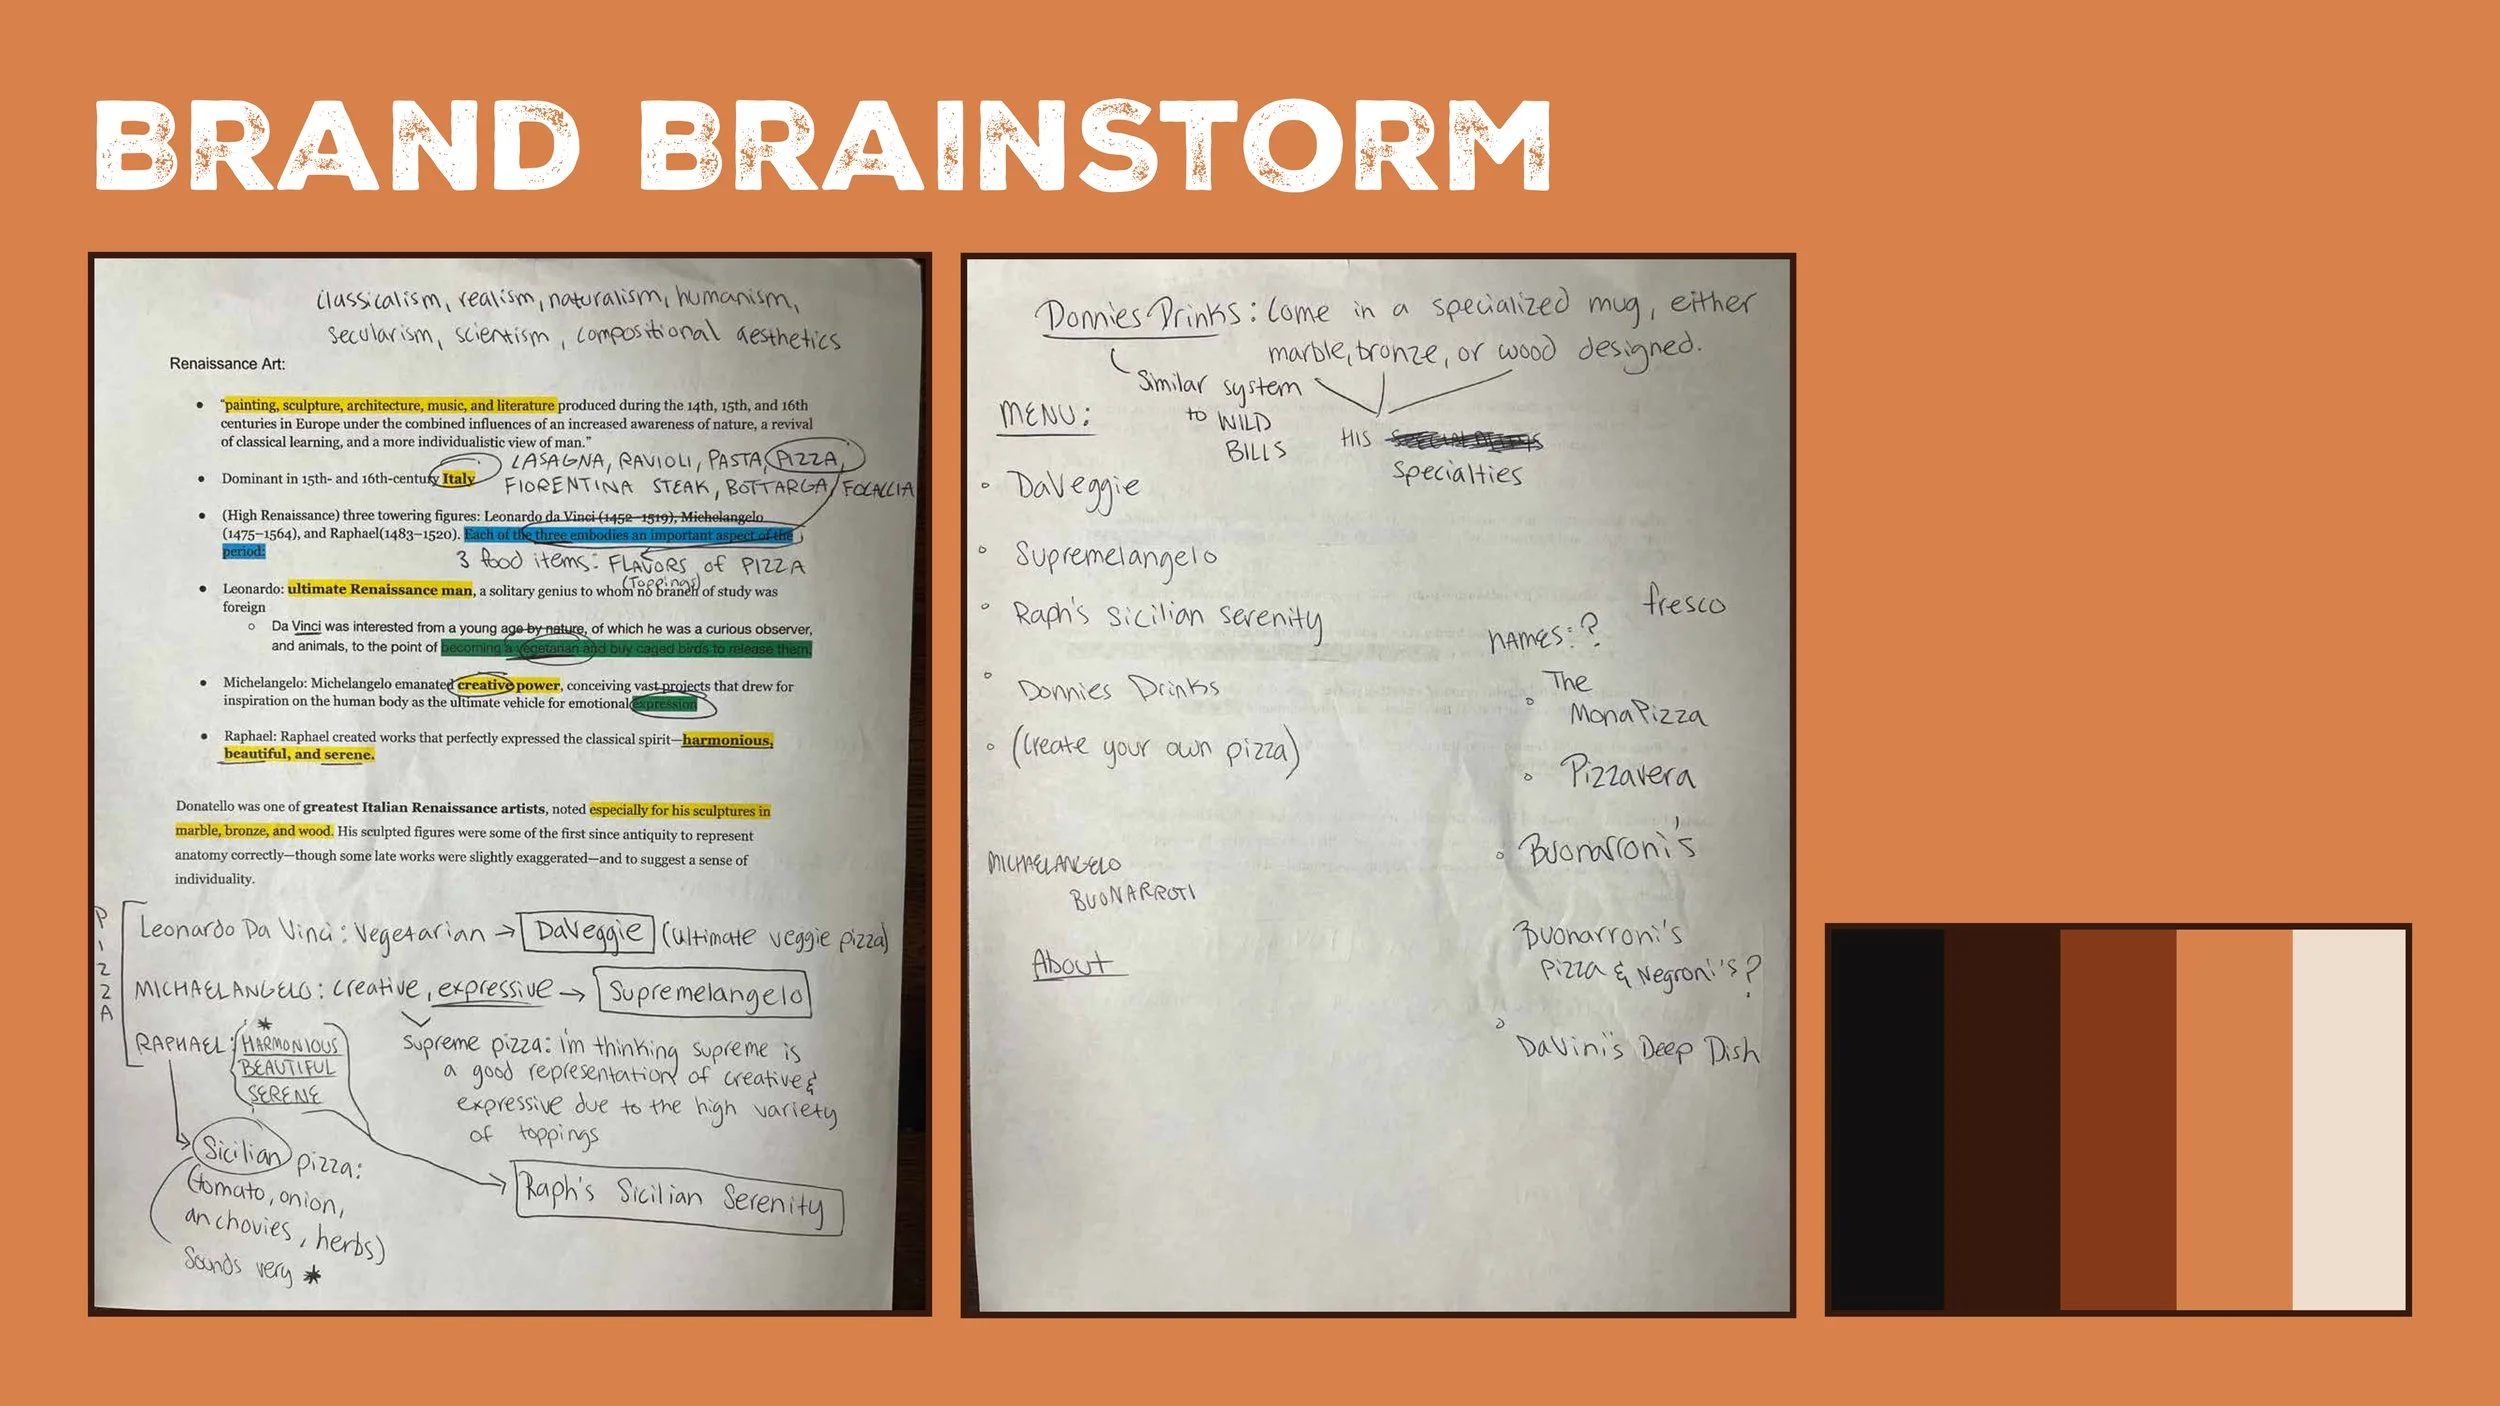 BRAND BRAINSTORM
classicalism, realism, naturalism, humanism,
secularism, scientism, compositional aesthetics
Renaissance Art:
● "painting, sculpture, architecture, music, and literature produced during the 14th, 15th, and 16th
centuries in Europe under the combined influences of an increased awareness of nature, a revival
of classical learning, and a more individualistic view of man."
LASAGNA, RAVIOLI, PASTA, PIZZA,
● Dominant in 15th- and 16th-century Italy
FIORENTINA STEAK, BOTTARGA, FOCALLIA
● (High Renaissance) three towering figures: Leonardo da Vinci (1452–1519), Michelangelo
(1475–1564), and Raphael(1483–1520). Each of the three embodies an important aspect of the
period:
3 food items: FLAVORS of PIZZA
(Toppings)
● Leonardo: ultimate Renaissance man, a solitary genius to whom no branch of study was
foreign
○ Da Vinci was interested from a young age by nature, of which he was a curious observer,
and animals, to the point of becoming a vegetarian and buy caged birds to release them.
● Michelangelo: Michelangelo emanated creative power, conceiving vast projects that drew for
inspiration on the human body as the ultimate vehicle for emotional expression
● Raphael: Raphael created works that perfectly expressed the classical spirit—harmonious,
beautiful, and serene.
Donatello was one of greatest Italian Renaissance artists, noted especially for his sculptures in
marble, bronze, and wood. His sculpted figures were some of the first since antiquity to represent
anatomy correctly—though some late works were slightly exaggerated—and to suggest a sense of
individuality.
PIZZA
Leonardo Da Vinci: Vegetarian → DaVeggie (ultimate veggie pizza)
MICHAELANGELO: creative, expressive → Supremelangelo
*
RAPHAEL: HARMONIOUS
BEAUTIFUL
SERENE
Supreme pizza: i'm thinking supreme is
a good representation of creative &
expressive due to the high variety
of toppings
Sicilian pizza:
(tomato, onion,
anchovies, herbs)
Sounds very *
Raph's Sicilian Serenity
Donnies Drinks: Come in a specialized mug, either
marble, bronze, or wood designed.
Similar system
to WILD
BILLS
HIS
Specialties
MENU:
◦ DaVeggie
◦ Supremelangelo
◦ Raph's Sicilian Serenity
◦ Donnies Drinks
◦ (Create your own pizza)
fresco
NAMES:?
◦ The
MonaPizza
◦ Pizzavera
◦ Buonarroni's
MICHAELANGELO
BUONARROTI
Buonarroni's
Pizza & Negroni's?
About
◦ DaVini's Deep Dish